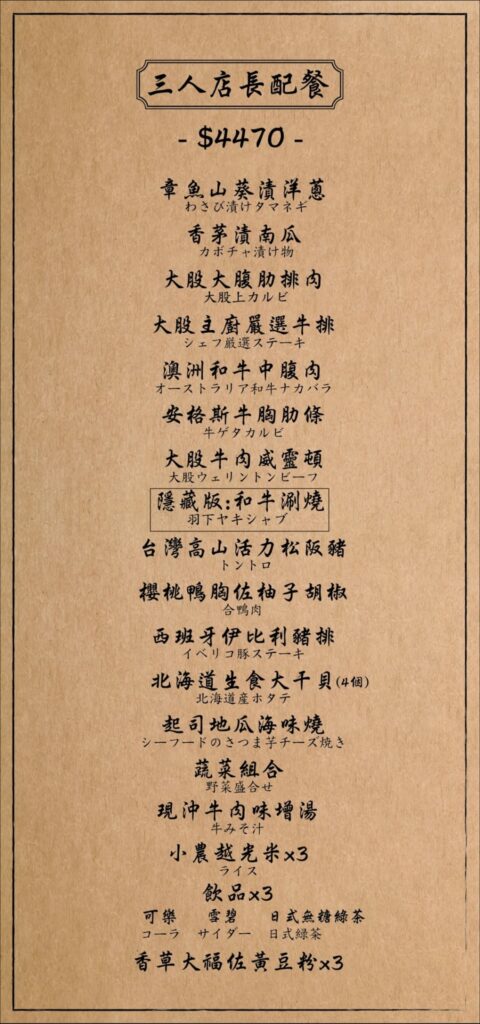 三人店長配餐
- $4470 -
章魚山葵漬洋蔥
わさび漬けタマネギ
香茅漬南瓜
カボチャ漬け物
大股大腹肋排肉
大股上カルビ
大股主廚嚴選牛排
シェフ厳選ステーキ
澳洲和牛中腹肉
オーストラリア和牛ナカバラ
安格斯牛胸肋條
牛ゲタカルビ
大股牛肉威靈頓
大股ウェリントンビーフ
隱藏版:和牛涮燒
羽下ヤキシャブ
台灣高山活力松阪豬
トントロ
櫻桃鴨胸佐柚子胡椒
合鴨肉
西班牙伊比利豬排
イベリコ豚ステーキ
北海道生食大干貝(4個)
北海道産ホタテ
起司地瓜海味燒
シーフードのさつま芋チーズ焼き
蔬菜組合
野菜盛合せ
現沖牛肉味增湯
牛みそ汁
小農越光米x3
ライス
飲品x3
可樂 雪碧 日式無糖綠茶
コーラ サイダー 日式緑茶
香草大福佐黃豆粉x3